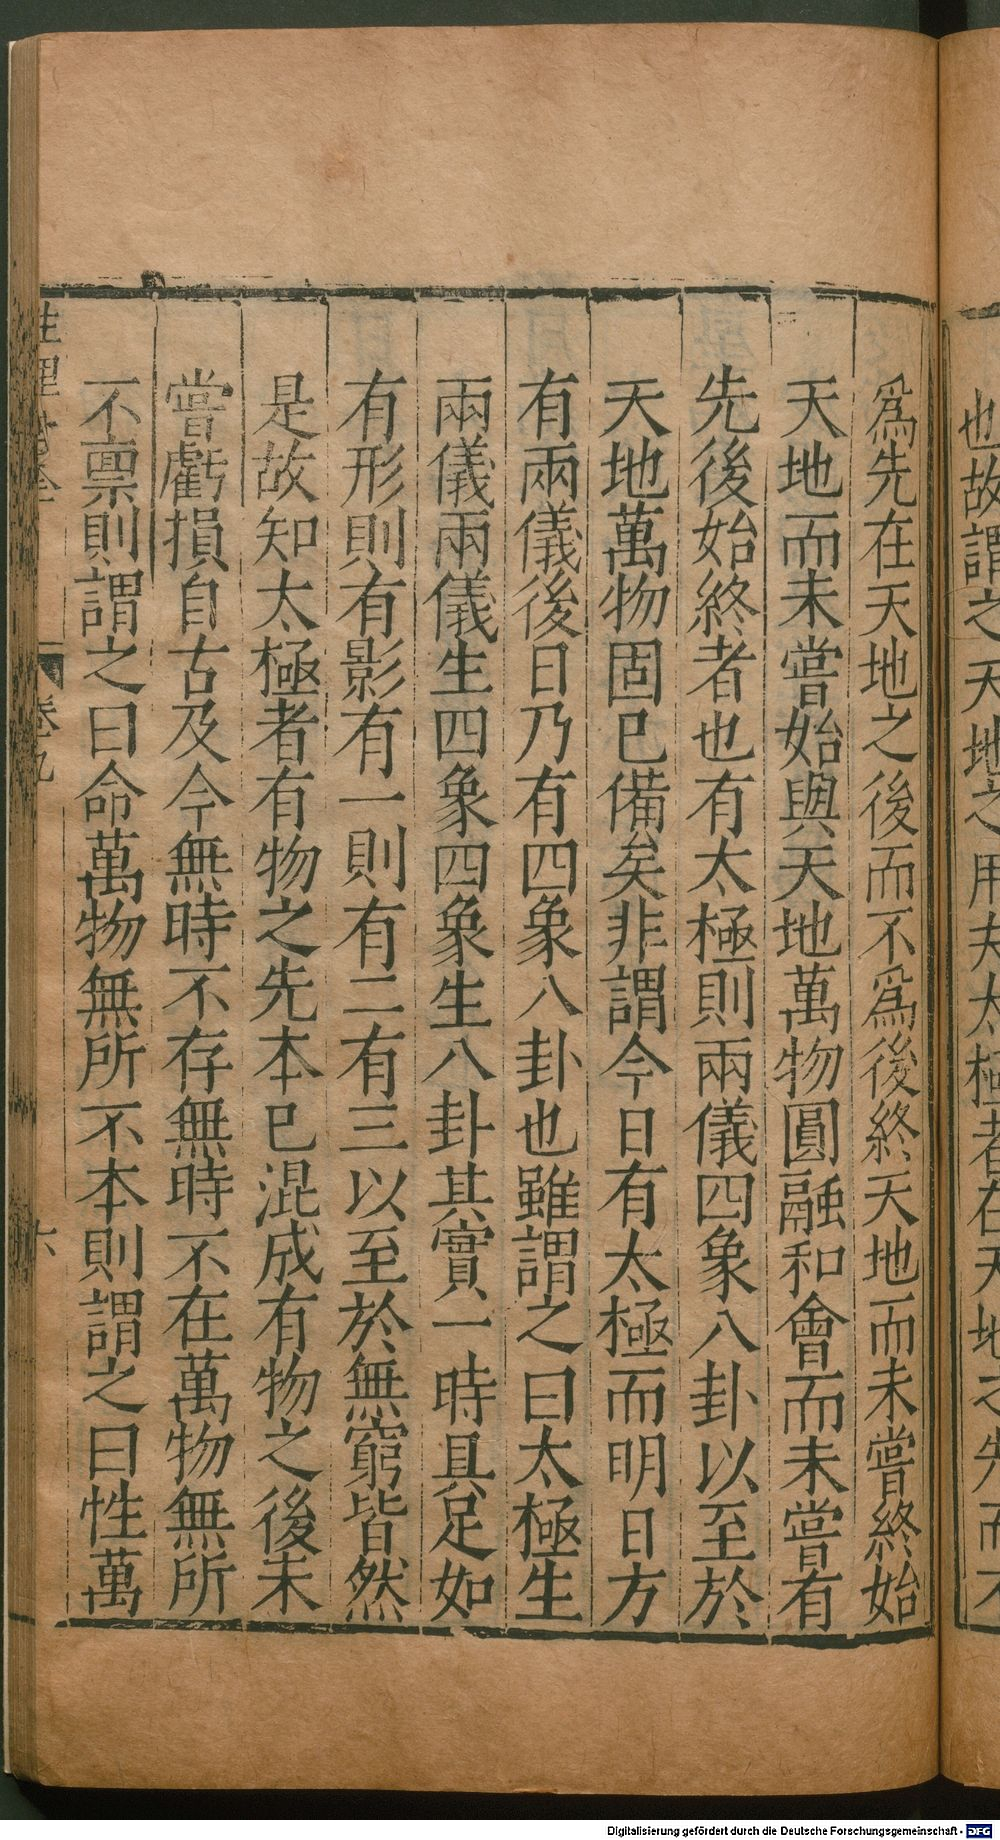 也故謂之天地之用夫太極者在天地之先而不
爲先在天地之後而不爲後終天地而未嘗終始
天地而未嘗始與天地萬物圓融和會而未嘗有
先後始終者也有太極則兩儀四象八卦以至於
天地萬物固已備矣非謂今日有太極而明日方
有兩儀後日乃有四象八卦也雖謂之曰太極生
兩儀兩儀生四象四象生八卦其實一時具足如
有形則有影有一則有二有三以至於無窮皆然
是故知太極者有物之先本已混成有物之後未
嘗虧損自古及今無時不存無時不在萬物無所
不禀則謂之曰命萬物無所不本則謂之曰性萬
性理大全 卷之九 六
Digitalisierung gefördert durch die Deutsche Forschungsgemeinschaft - DFG